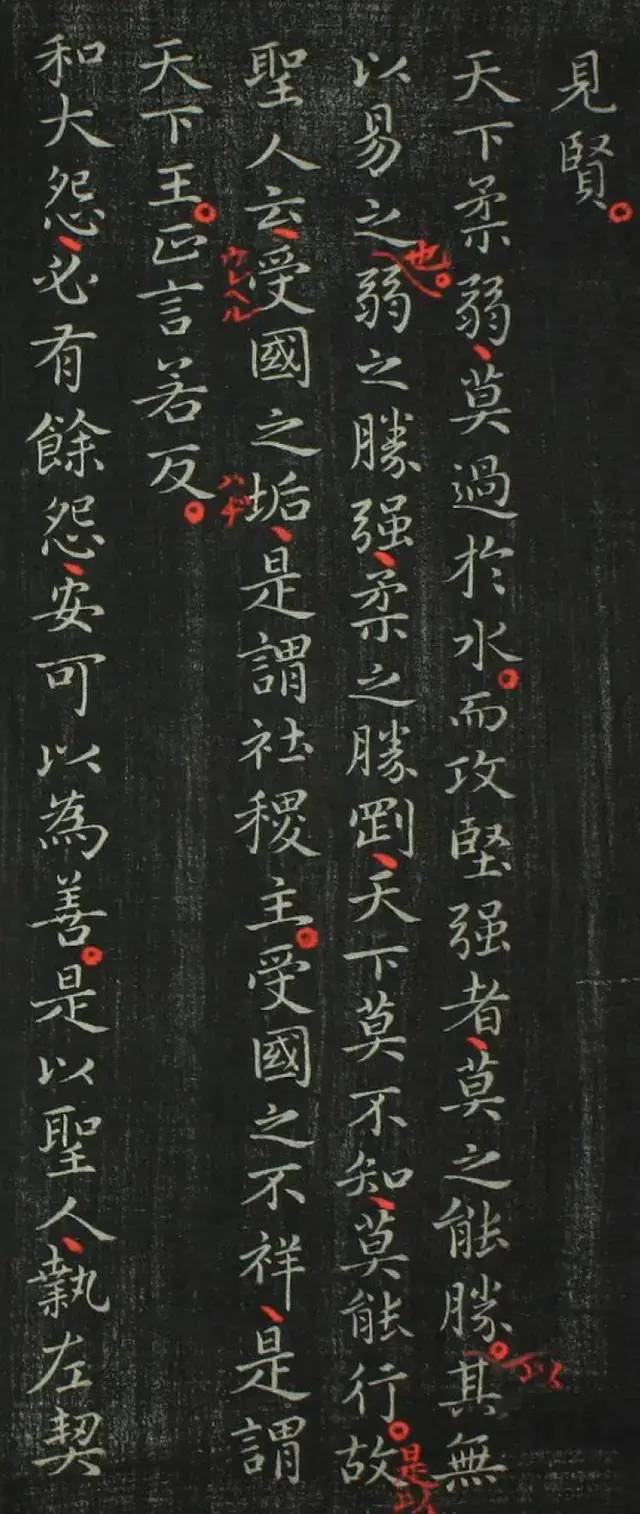 見賢。
天下柔弱、莫過於水。而攻堅强者、莫之能勝。其無
以易之也。弱之勝强、柔之勝剛、天下莫不知、莫能行。故
聖人云、受國之垢、是謂社稷主。受國之不祥、是謂
天下王。正言若反。
和大怨、必有餘怨、安可以為善。是以聖人、執左契
以
ウレヘル
ハヂ
是以